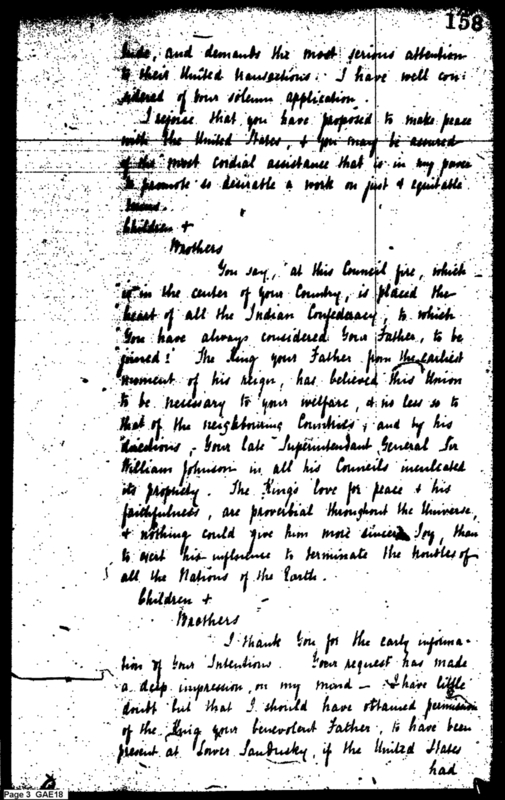 158
hide, and demands the most serious attention
to their United transactions. I have well con-
sidered of your solemn application.
I rejoice that you have proposed to make peace
with the United States, & you may be assured
of the most cordial assistance that is in my power
to promote so desirable a work on just & equitable
terms.
Children &
Brothers
You say, "at this Council fire, which
"is in the center of your Country, is placed the
"heart of all the Indian Confederacy, to which
"you have always considered your Father, to be
joined! The King your Father from the earliest
moment of his reign, has believed this Union
to be necessary to your welfare, & no less so to
that of the neighbouring Countries; and by his
directions, your late Superintendant General Sir
William Johnson in all his Councils inculcated
its propriety. The King's love for peace & his
faithfulness, are proverbial throughout the Universe,
& nothing could give him more sincere Joy, than
to exert his influence to terminate the troubles of
all the Nations of the Earth.
Children &
Brothers
I thank you for the early informa-
tion of your Intentions. Your request has made
a deep impression, on my mind — I have little
doubt but that I should have obtained permission
of the King your benevolent Father, to have been
present at Lower Sandusky, if the United States
had
Page 3 GAE18